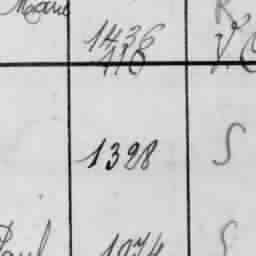 Marie
1436 V.
110
1328 S
Paul 1074 S